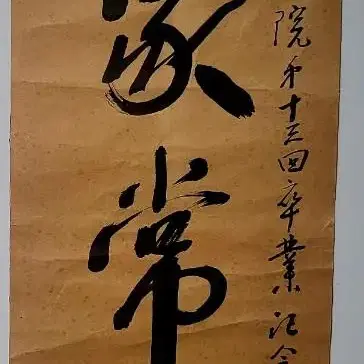 院第十三回卒業記念
家常